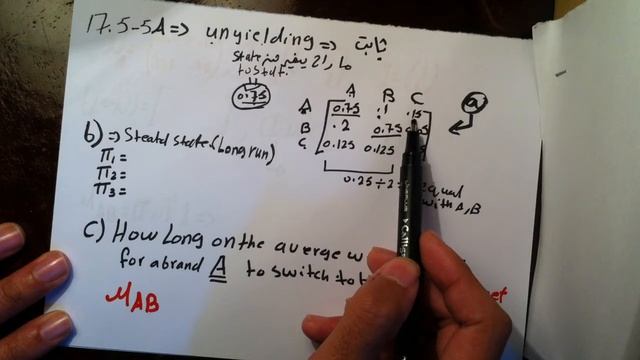 17.5-5A => unyielding => ثابت
ما راح يغير من state
to stat.
0.75
a
A B C
A 0.75 .1 .15
B .2 0.75
C 0.125 0.125
0.25 ÷ 2 = equal
with A, B
b) => Steatd state (Long run)
π₁ =
π₂ =
π₃ =
C) How long on the averge w
for a brand A to switch to
M AB